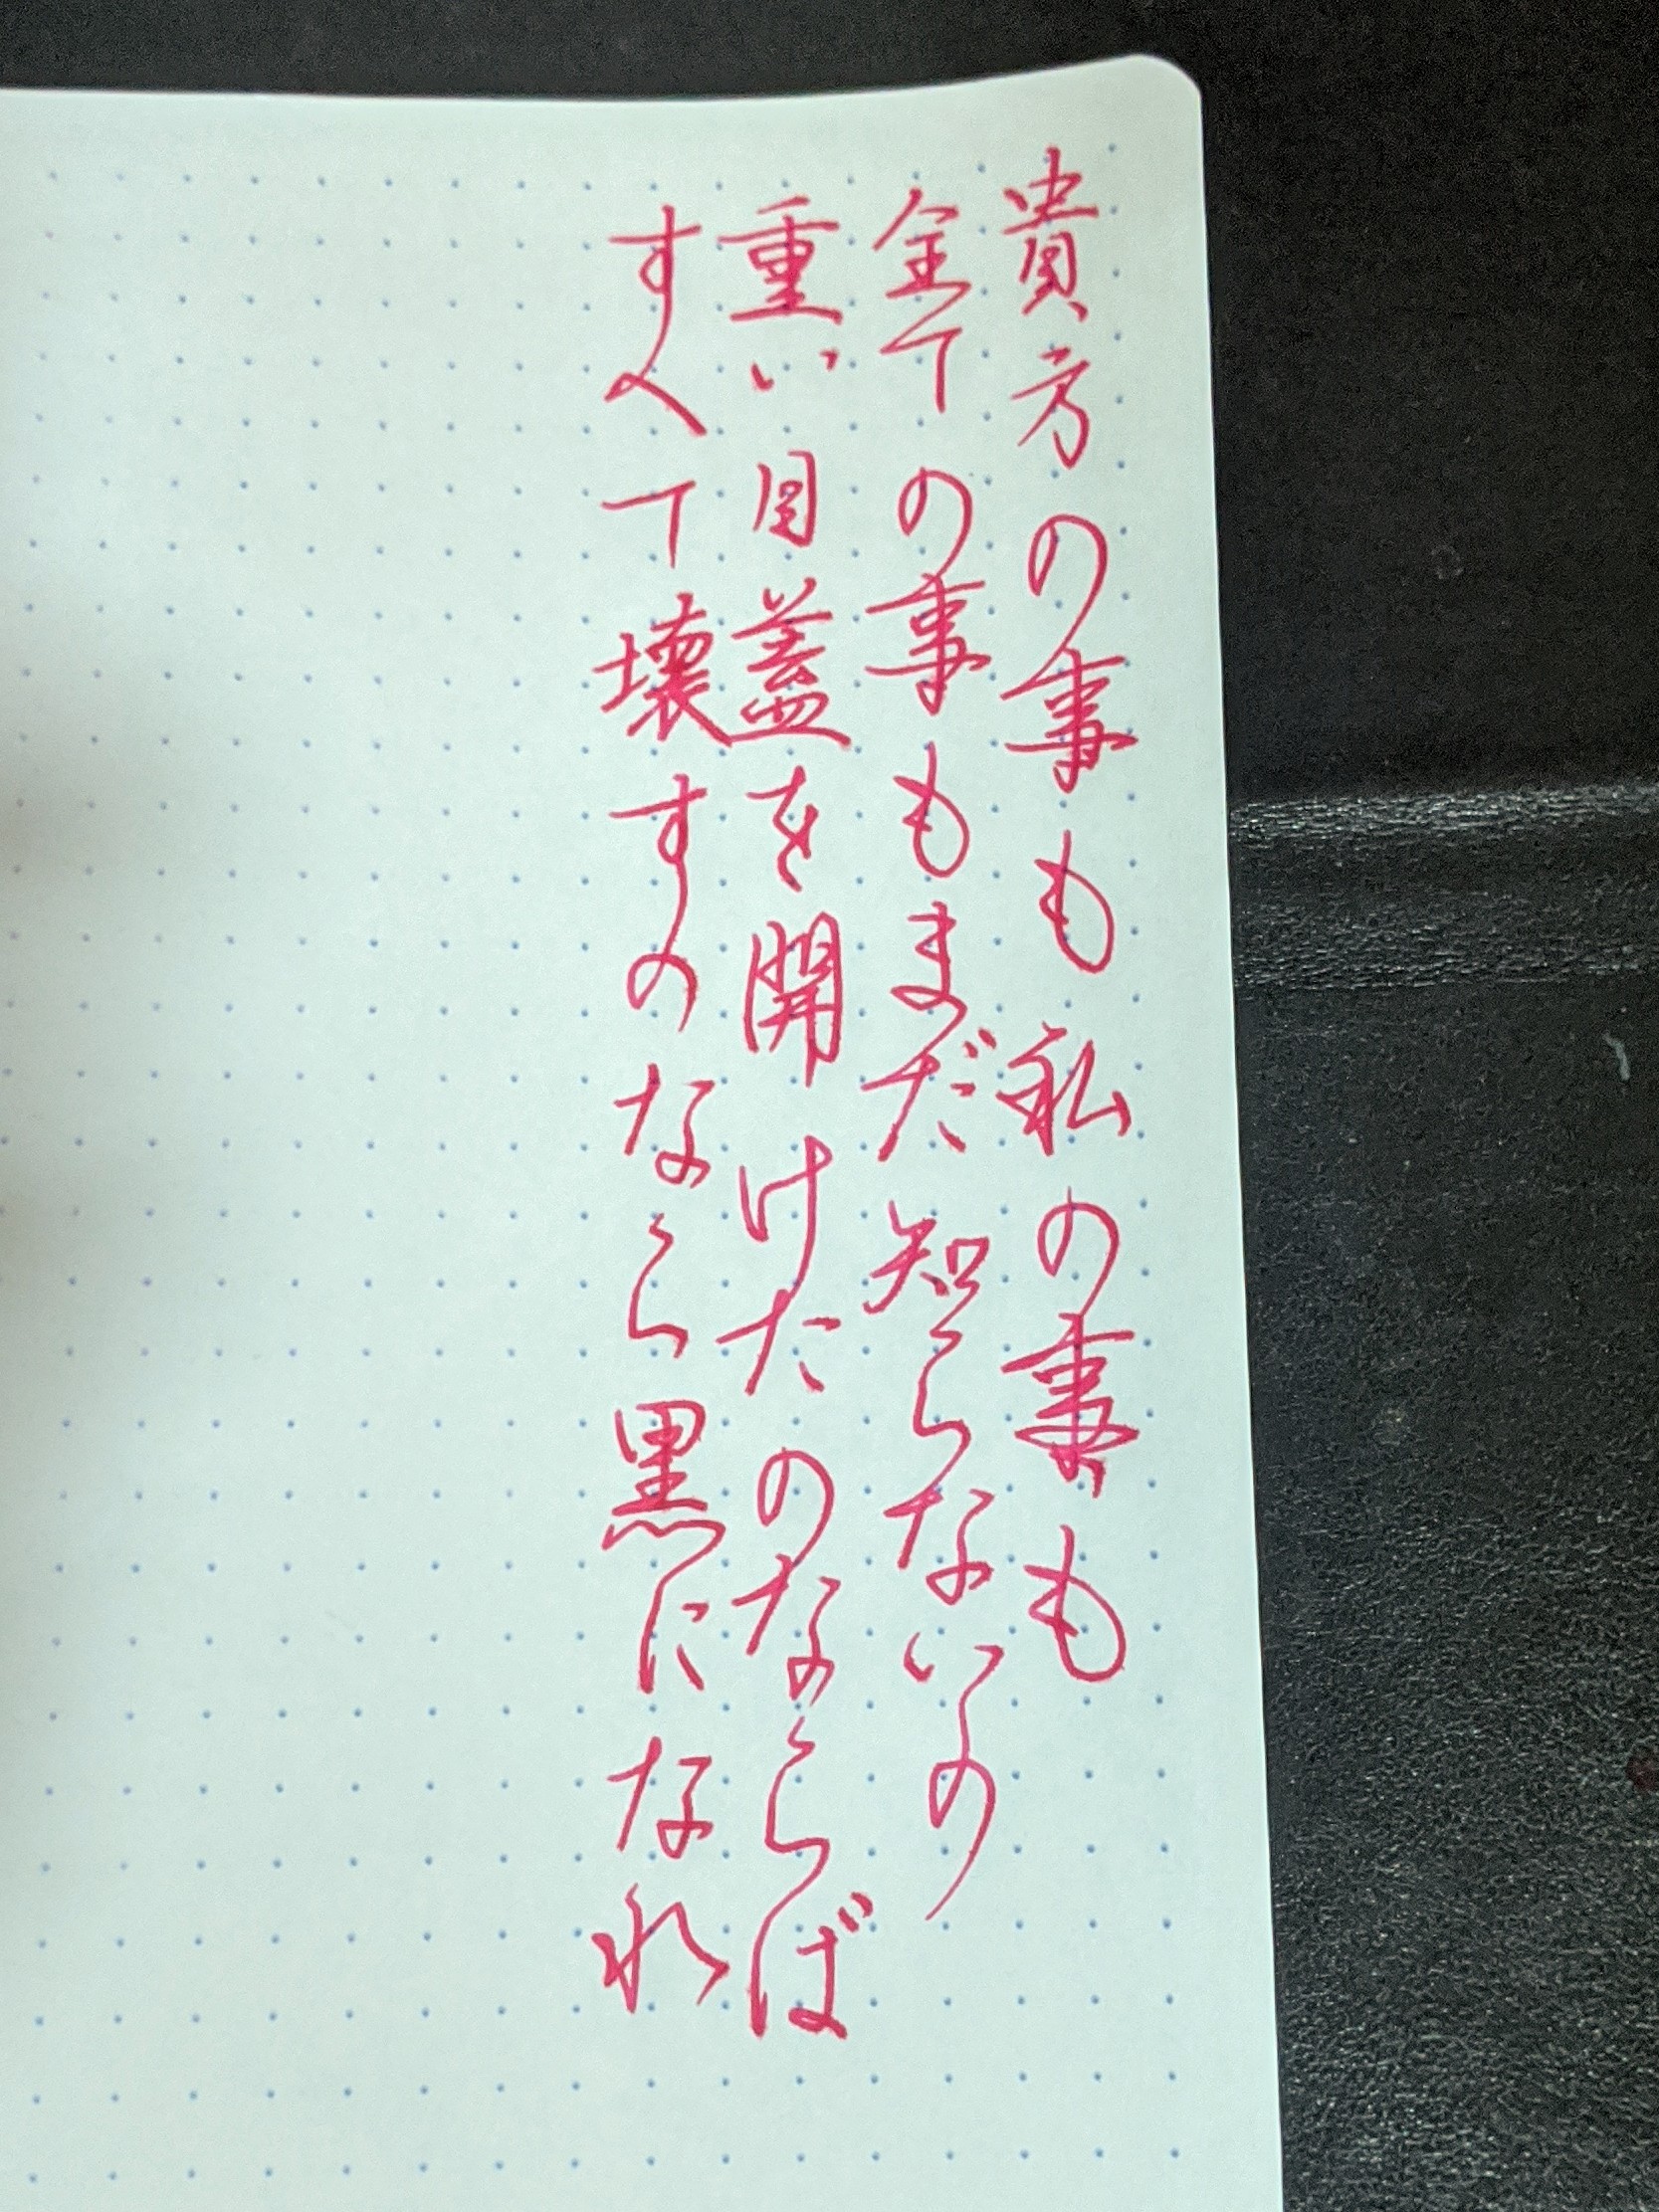 貴方の事も私の事も
全ての事もまだ知らないの
重い目蓋を開けたのならば
すべて壊すのなら黒になれ